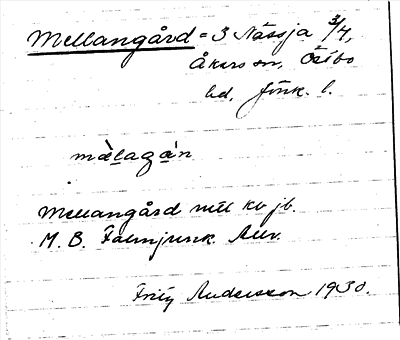 Mellangård = 3 Nässja 3/4,
Åkers sn, Östbo
hd, Jönk. l.
mä̀lagán
Mellangård mtl kb jb.
M. B.
Fritz Andersson 1930.